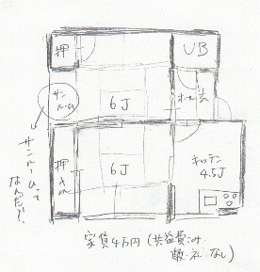 押
UB
サンルーム
6J
ホール
押入
6J
キッチン
4.5J
サンルームって
なんだ?!
家賃4万円(共益費コミ
敷・礼 なし)